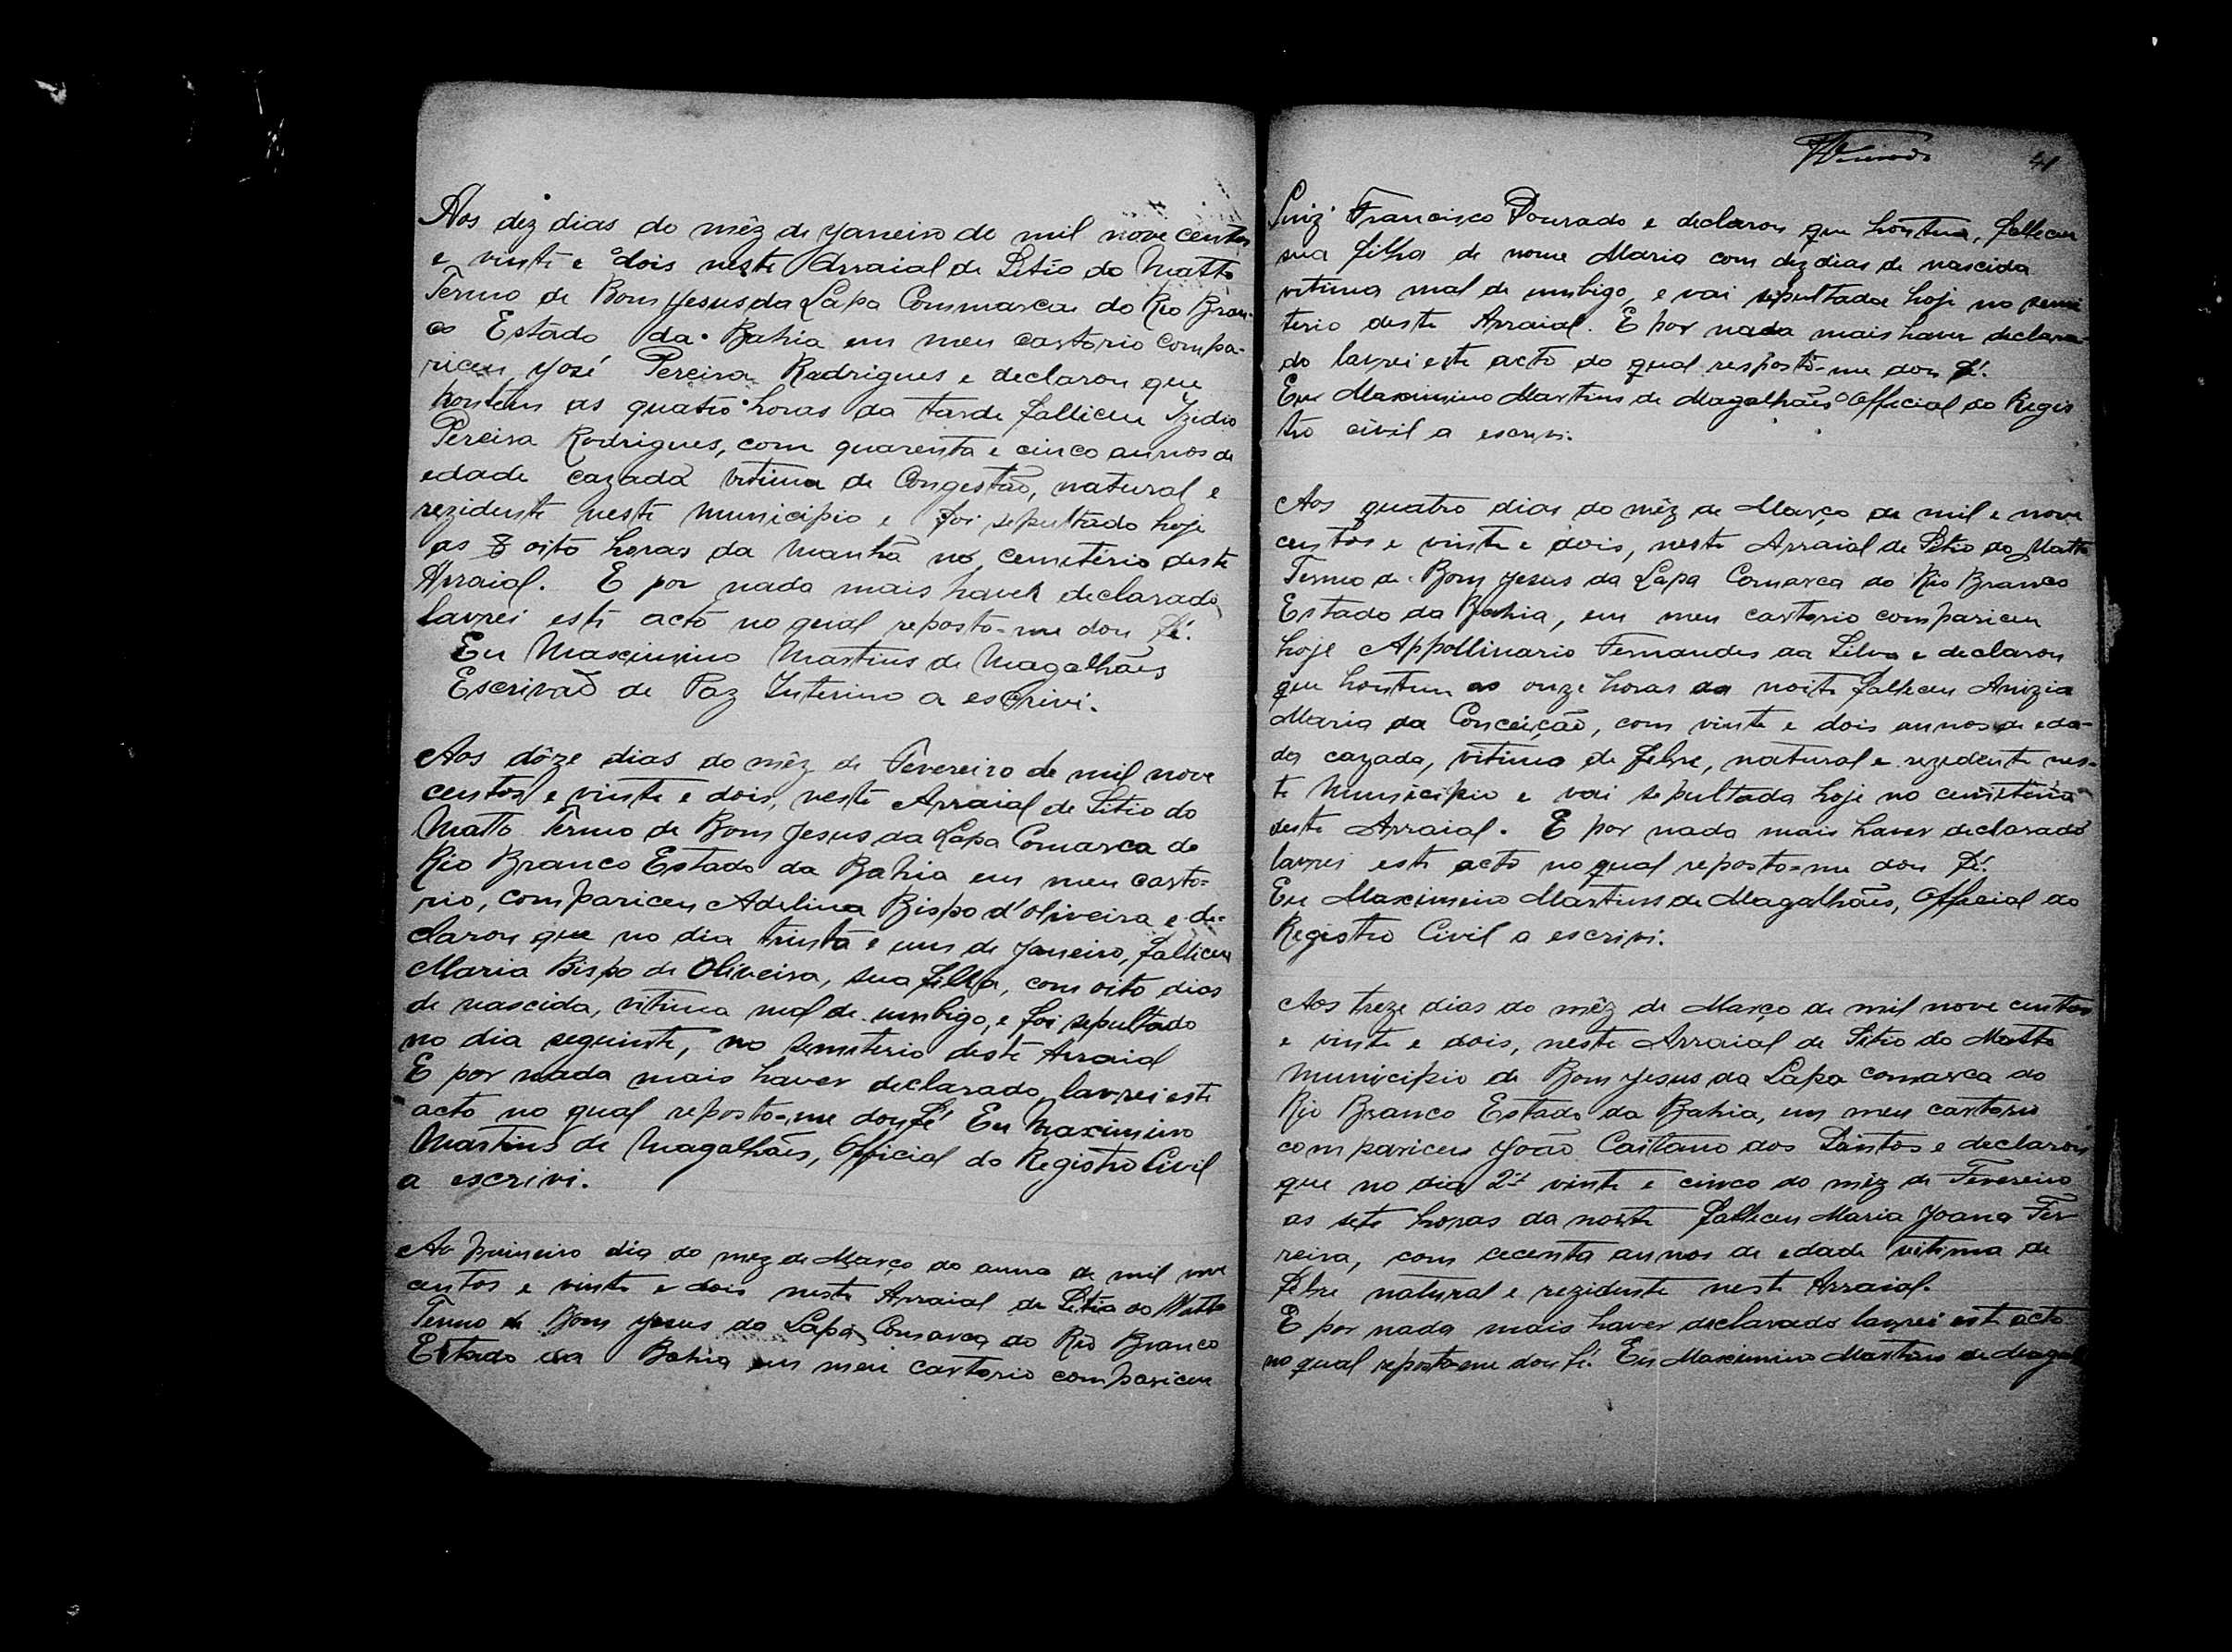 Aos dez dias do mêz de Janeiro de mil nove centos
e vinte e dois neste Arraial de Sitio do Matto
Termo de Bom Jesus da Lapa Commarca do Rio Bran-
co Estado da Bahia em meu cartorio compa-
riceu José Pereira Rodrigues e declarou que
hontem as quatro horas da tarde falliceu Izidio
Pereira Rodrigues, com quarenta e cinco annos de
edade cazada vitima de Congestão, natural e
rezidente neste Municipio e foi sepultado hoje
as 8 oito horas da manhã no cemitério deste
Arraial. E por nada mais haver declarado
lavrei este acto no qual reposto-me dou fé.
Eu Maximino Martins de Magalhães
Escrivão de Paz Interino a escrivi.
Aos dôze dias do mêz de Fevereiro de mil nove
centos e vinte e dois, neste Arraial de Sitio do
Matto Termo de Bom Jesus da Lapa Comarca do
Rio Branco Estado da Bahia em meu carto=
rio, compariceu Adelina Bispo d'Oliveira e de=
clarou que no dia trinta e um de Janeiro, falliceu
Maria Bispo de Oliveira, sua filha, com oito dias
de nascida, vitima mal de umbigo, e foi sepultado
no dia seguinte, no semiterio deste Arraial
E por nada mais haver declarado lavrei este
acto no qual reposto-me dou fé Eu Maximino
Martins de Magalhães, Official do Registro Civil
a escrivi.
Ao primeiro dia do mez de Março do anno de mil nove
centos e vinte e dois neste Arraial de Sitio do Matto
Termo de Bom Jesus da Lapa Comarca do Rio Branco
Estado da Bahia em meu cartorio compariceu
41
Luiz Francisco Dourado e declarou que hontem, falleceu
sua filha de nome Maria com dez dias de nascida
vitima mal de umbigo, e vai sepultada hoje no semi
terio deste Arraial. E por nada mais haver declara-
do lavrei este acto do qual resposto-me dou fé.
Eu Maximino Martins de Magalhães Official do Regis
tro civil a escrivi.
Aos quatro dias do mêz de Março de mil e nove
centos e vinte e dois, neste Arraial de Sitio do Matto
Termo de Bom Jesus da Lapa Comarca do Rio Branco
Estado da Bahia, em meu cartorio compariceu
hoje Appollinario Fernandes da Silva e declarou
que hontem as onze horas da noite falleceu Anizia
Maria da Conceição, com vinte e dois annos de eda-
de, cazada, vitima de febre, natural e rezidente nes-
te Municipio e vai sepultada hoje no cemiterio
deste Arraial. E por nada mais haver declarado
lavrei este acto no qual reposto=me dou fé.
Eu Maximino Martins de Magalhães, Official do
Registro Civil a escrivi.
Aos treze dias do mêz de Março de mil nove centos
e vinte e dois, neste Arraial de Sitio do Matto
Municipio de Bom Jesus da Lapa comarca do
Rio Branco Estado da Bahia, em meu cartorio
compariceu João Caitano dos Santos e declarou
que no dia vinte e cinco do mêz de Fevereiro
as sete horas da noite falleceu Maria Joana Fer
reira, com cecenta annos de edade vitima de
febre natural e rezidente neste Arraial.
E por nada mais haver declarado lavrei este acto
no qual reposto-me dou fé. Eu Maximino Martins de Magal